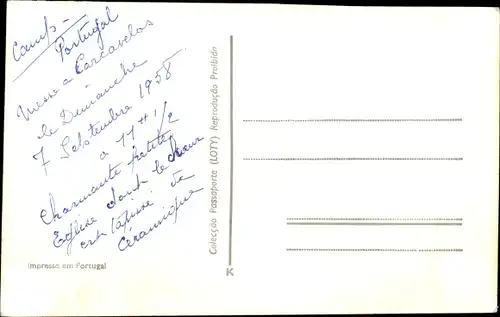 Camp -
Portugal
Messe a Carcavelos
le Dimanche
7 Setembre 1958
a 11 H 1/2
Charmante petite
Eglise dont le choeur
est tapissé de
Céramique
Impresso em Portugal
Colecção Passaporte (LOTY) Reprodução Proibida
K